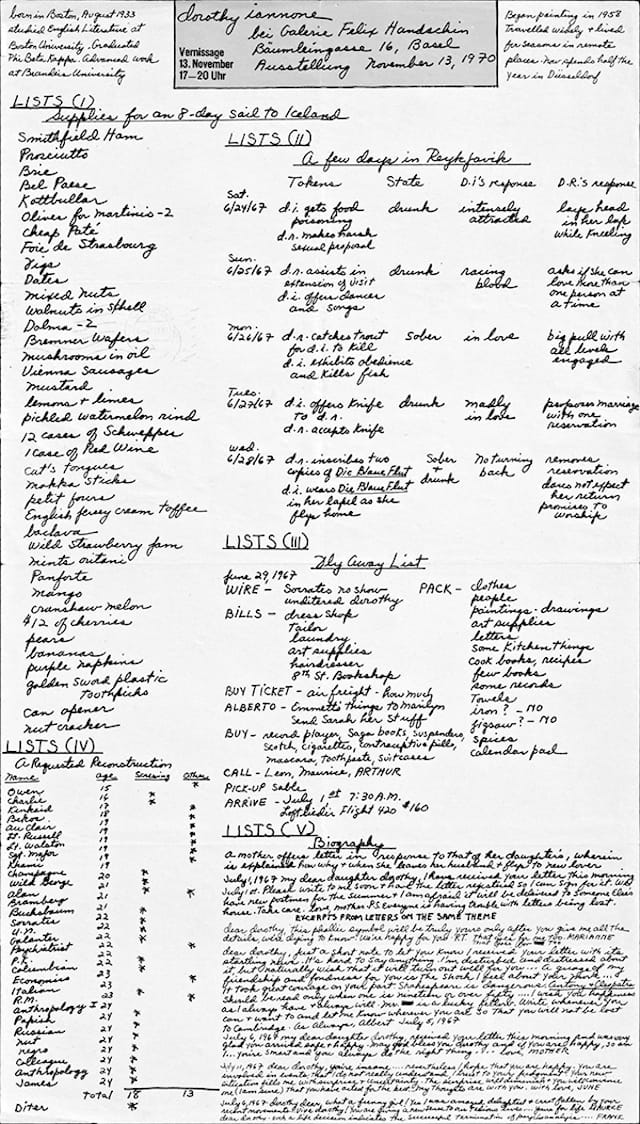 born in Boston, August 1933
studied English Literature at
Boston University. Graduated
Phi Beta Kappa. Advanced work
at Brandeis University
dorothy iannone
bei Galerie Felix Handschin
Bäumleingasse 16, Basel
Ausstellung November 13, 1970
Vernissage
13. November
17—20 Uhr
Began painting in 1958
Travelled widely + lived
for seasons in remote
places. Now spends half the
year in Düsseldorf
LISTS (I)
Supplies for an 8-day sail to Iceland
Smithfield Ham
Prosciutto
Brie
Bel Paese
Kottbullar
Olives for martinis - 2
Cheap Paté
Foie de Strasbourg
Figs
Dates
mixed nuts
Walnuts in Shell
Dolma - 2
Bremner Wafers
mushrooms in oil
Vienna Sausages
mustard
lemons + limes
pickled watermelon rind
12 cases of Schweppes
1 case of Red Wine
Cat's tongues
mokka Sticks
petit fours
English fersy cream toffee
baclava
Wild Strawberry Jam
mints
Panforte
mango
cranshaw melon
$12 of cherries
pears
bananas
purple napkins
golden sword plastic
toothpicks
can opener
nut cracker
LISTS (II)
A few days in Reykjavik
Tokens State D.i's response D.R.'s response
Sat.
6/24/67 d.i. gets food drunk intensely lays head
poisoning attracted in her lap
d.r. makes harsh while kneeling
sexual proposal
Sun.
6/25/67 d.r. assists in drunk racing asks if she can
extension of visit blood love more than
d.i. offers dances one person at
and songs a time
Mon.
6/26/67 d.r. catches trout Sober in love big pull with
for d.i. to kill all levels
d.i. exhibits obedience engaged
and kills fish
Tues.
6/27/67 d.i. offers knife drunk madly proposes marriage
to d.r. in love with one
d.r. accepts knife reservation
Wed.
6/28/67 d.r. inscribes two Sober No turning removes
copies of Die Blaue Flut + back reservation
d.i. wears Die Blaue Flut drunk does not expect
in her lapel as she her return
flys home promises to
worship
LISTS (III)
Fly Away List
June 29, 1967
WIRE - Socrates no show
undeterred dorothy
BILLS - dress shop
Tailor
laundry
art supplies
hairdresser
8th St. Bookshop
BUY TICKET - air freight - how much
ALBERTO - Emmett's things to Marilyn
Send Sarah her Stuff
BUY - record player, Saga books, suspenders,
Scotch, cigarettes, contraceptive pills,
mascara, toothpaste, suitcases
CALL - Leon, Maurice, ARTHUR
PICK-UP Sable
ARRIVE - July 1st 7:30 A.M.
Loftleidir Flight 420 $160
PACK - clothes
people
paintings - drawings
art supplies
letters
some Kitchen things
cook books, recipes
few books
some records
Towels
iron? - NO
jigsaw? - NO
spices
calendar pad
LISTS (IV)
A Requested Reconstruction
Name age Screwing Other
Owen 15 *
Charlie 16 *
Kinkaid 17 *
18 *
Au Clair 19 *
Lt. Russell 19 *
Lt. Walston 19 *
Sgt. Major 19 *
19 *
Champagne 20 *
Wild Berge 21 *
Alan 21 *
Bramberg 21
Buchsbaum 21 *
Socrates 22 *
U.N. 22 *
Galanter 22 *
Psychiatrist 22 *
P.F. 22 *
Columbian 22 *
Economics 23 *
Italian 23 *
R.M. 23 *
Anthropology I 24 *
Papish 24 *
Russian 24 *
Nut 24 *
negro 24 *
Colleague 24 *
Anthropology 24 *
James 24 *
Total 18 13
Diter *
LISTS (V)
Biography
A mother offers letter in response to that of her daughter's, wherein
is explained how why + when she leaves her husband + flys to new lover
July 1, 1967 my dear daughter dorothy, I have received your letter this morning
July 1st. Please write to me soon + have the letter registered so I can sign for it. We
have new postmen for the summer + I am afraid it will be delivered to someone else's
house. Take care. Love, mother P.S Everyone is having trouble with letters being lost.
EXCERPTS FROM LETTERS ON THE SAME THEME
dear dorothy, this phallic symbol will be truly yours only after you give me all the
details. We're dying to know. We're happy for you. R.T. MARIANNE
dear dorothy, just a short note to let you know I received your letter with its
startling news. It's hard to say anything. I'm distressed about
it, but naturally wish that it will turn out well for you
friendship and fondness for you is the shock I feel about your
It took great courage on your part. Shakespeare is dangerous. Antony + Cleopatra
should be read only when one is nineteen or over fifty.... I wish you happiness
as I always have + always will. Mr. is a lucky fellow. Write whenever you
can + want to and let me know where you are so that you will not be lost
to Cambridge. As Always, Albert July 5, 1967
July 6, 1967 my dear daughter dorothy, received your letter this morning and was very
glad you arrived safe + happy. May god bless you dorothy and if you are happy, so am
I... you're smart and you always do the right thing... Love, MOTHER
July 11, 1967 dear dorothy, you're insane... nevertheless, I hope that you are happy; you are
involved in events that I do not really understand, I trust to your judgement. Your new
situation fills me with surprise + uncertainty. The surprise will diminish + you will convince
me (I am sure) that you have acted for the best. My thoughts are with you. With love, JUNE
July 6, 1967 dorothy dear, what a funny girl! Yes I was amazed, delighted + crest fallen by your
recent movements. Vive dorothy! You are giving a new
dear dorothy, such a life decision indicates the successful termination of psychoanalysis.... FRANK